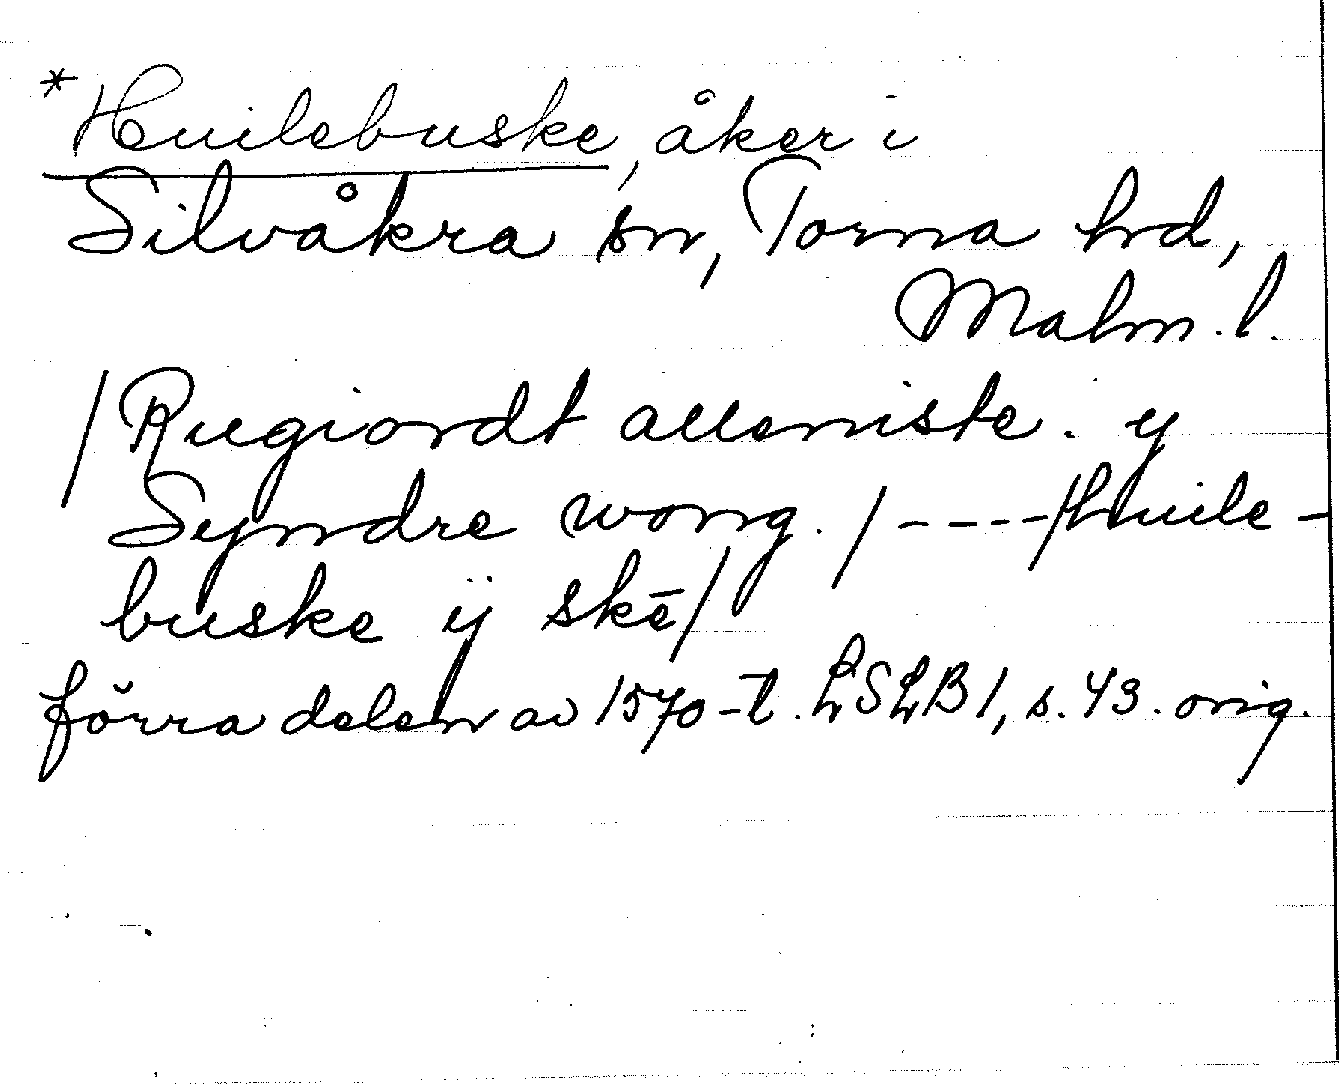 *Huilebuske, åker i
Silvåkra sn, Torna hrd,
Malm. l.
/Rugiordt allerniste. y
Syndre wong./----/huile-
buske ij skē/
förra delen av 1570-t. LSLB1, s. 43. orig.